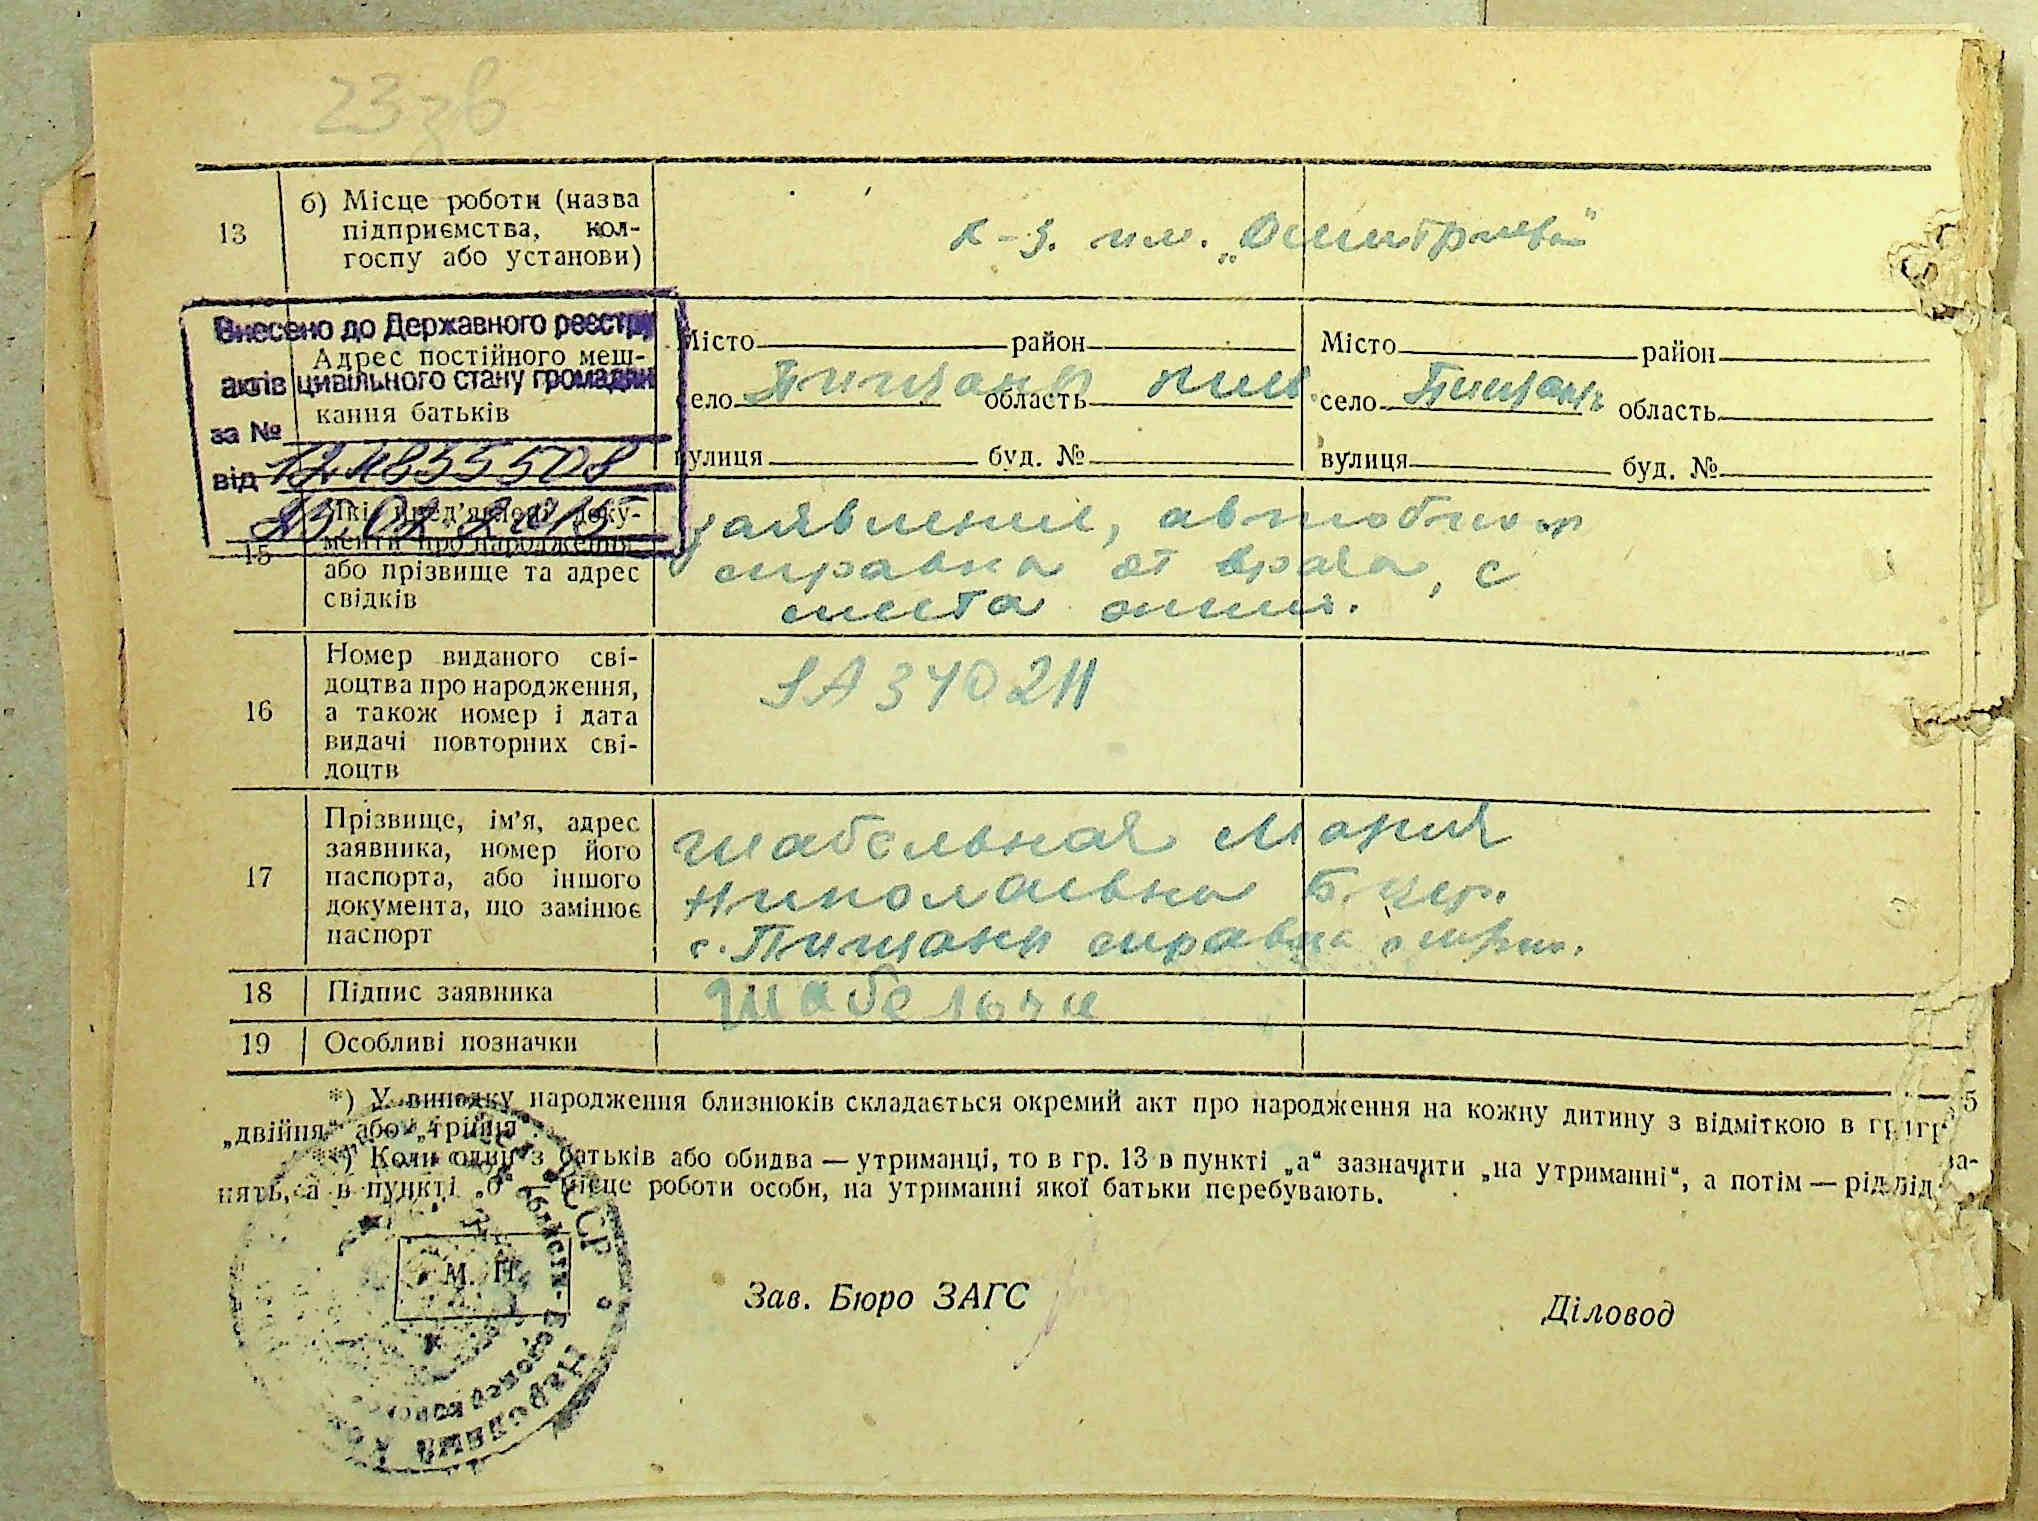 23зв
13
б) Місце роботи (назва
підприємства, кол-
госпу або установи)
к-з. им. „Димитрова"
Внесено до Державного реєстру
актів цивільного стану громадян
за №
від
Адрес постійного меш-
кання батьків
Місто район
село Пищани область
вулиця буд. №
Місто район
село Пищани область
вулиця буд. №
15
Які пред'явлені доку-
менти про народження
або прізвище та адрес
свідків
заявление,
справка от врача, с
места
16
Номер виданого сві-
доцтва про народження,
а також номер і дата
видачі повторних сві-
доцтв
17
Прізвище, ім'я, адрес
заявника, номер його
паспорта, або іншого
документа, що замінює
паспорт
Шабельная Мария
Николаевна Б. цер.
с. Пищани справка
18
Підпис заявника
Шабельна
19
Особливі позначки
*) У випадку народження близнюків складається окремий акт про народження на кожну дитину з відміткою в гр. 5
„двійня" або „трійня".
**) Коли один з батьків або обидва — утриманці, то в гр. 13 в пункті „а" зазначити „на утриманні", а потім — рід за-
нять, а в пункті „б" — місце роботи особи, на утриманні якої батьки перебувають.
М. П.
Зав. Бюро ЗАГС
Діловод